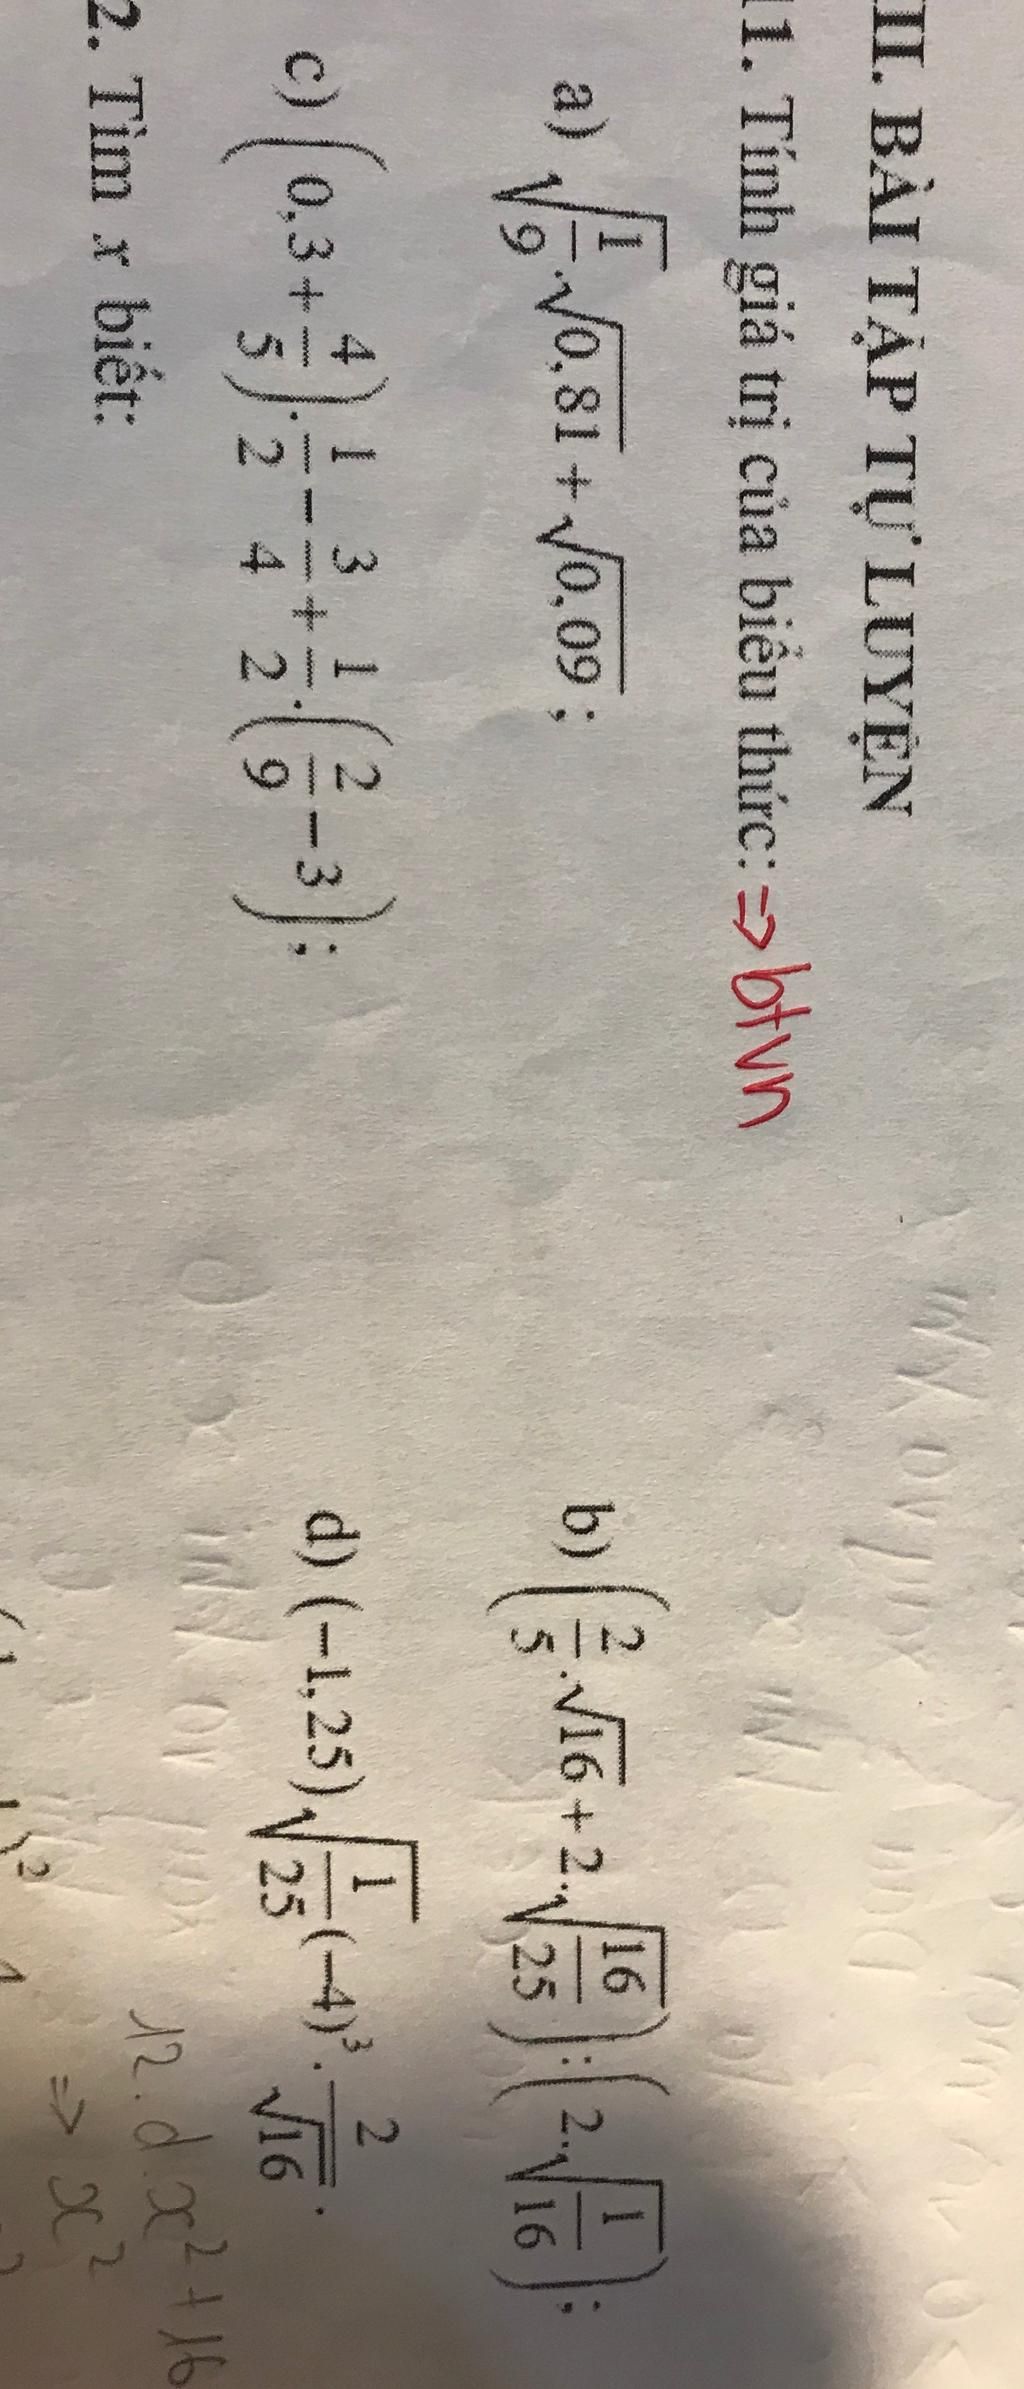 III. BÀI TẬP TỰ LUYỆN
11. Tính giá trị của biểu thức: => btvn
a) √(1/9).√0,81 + √0,09 ; b) (2/5.√16 + 2.√(16/25)):(2.√(1/16));
c) (0,3+4/5).1/2 − 3/4 + 1/2.(2/9 − 3); d) (−1,25)√(1/25)(−4)³.2/√16.
2. Tìm x biết: 12.d x² + 16
=> x²